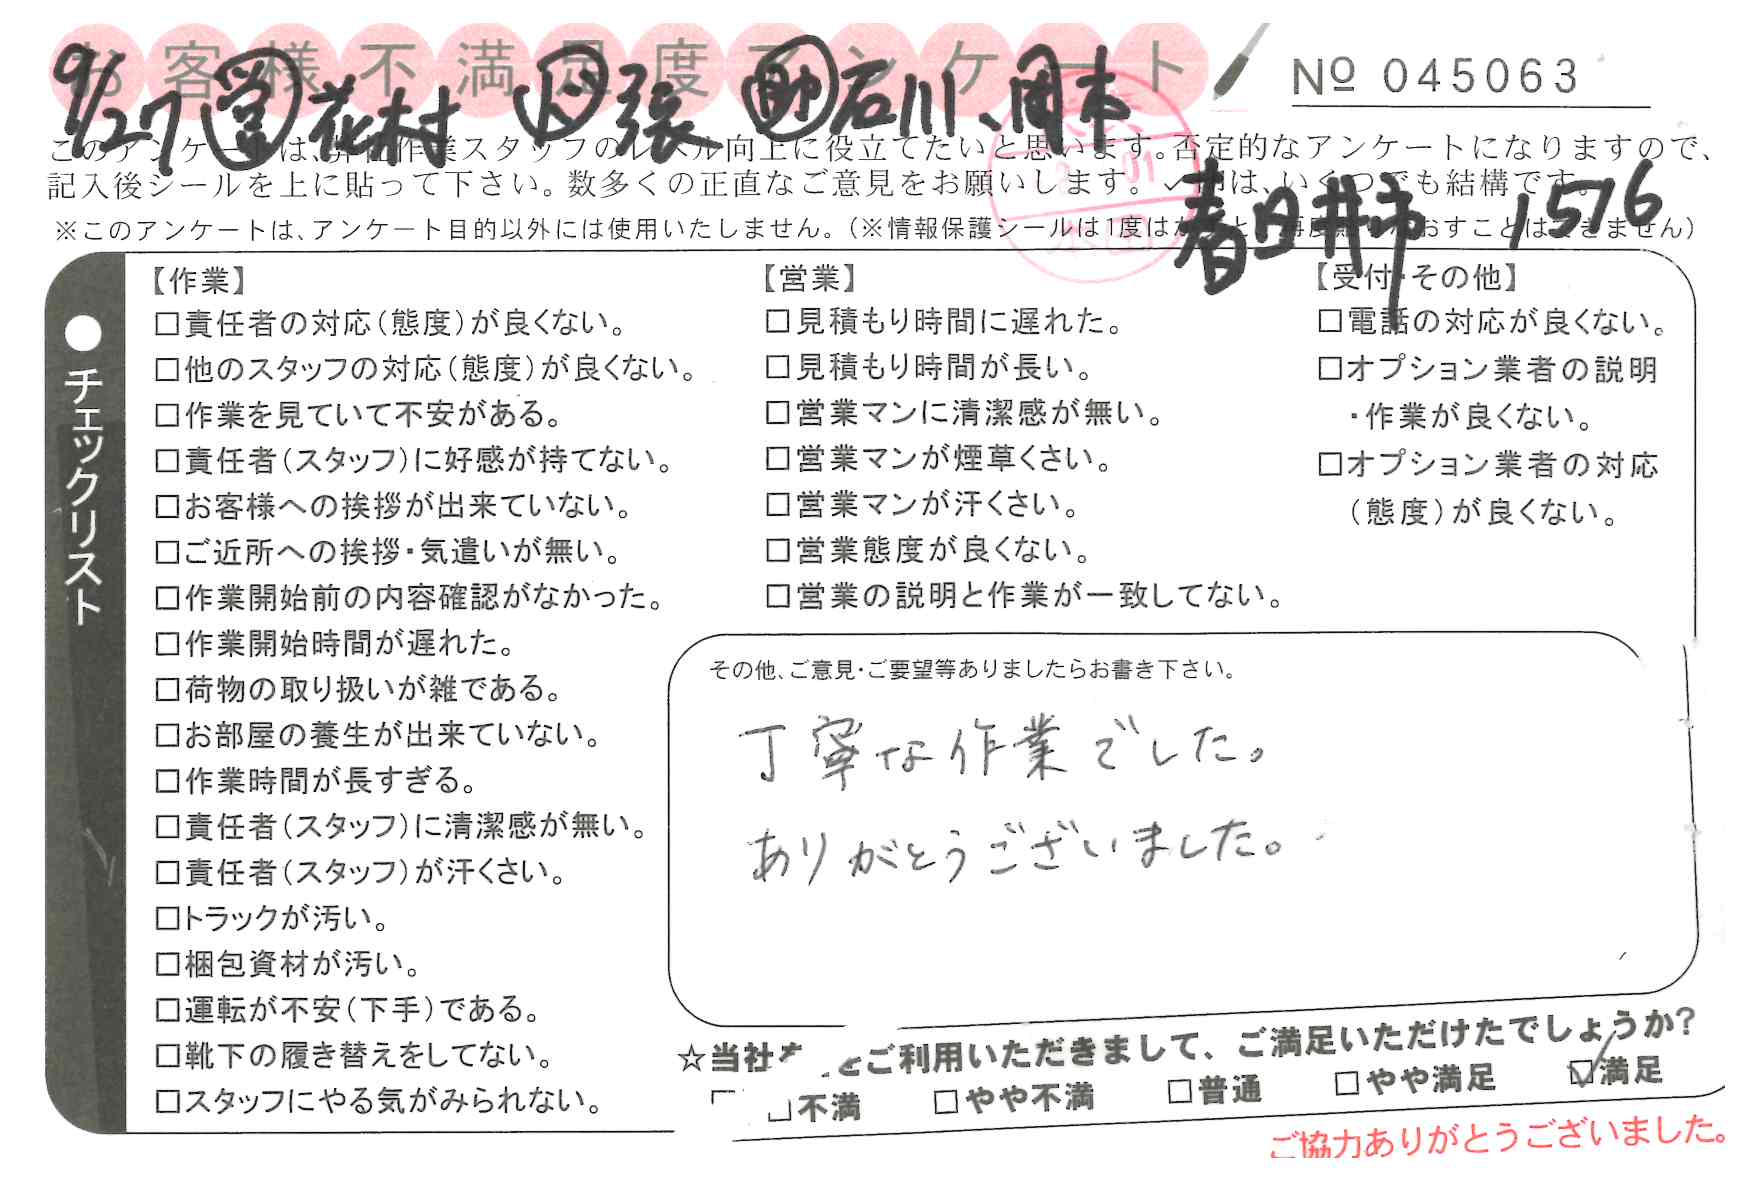 お客様不満足度アンケート
№ 045063
9/27 営 花村 ド 張 助 石川、岡本
このアンケートは、弊社作業スタッフのレベル向上に役立てたいと思います。否定的なアンケートになりますので、
記入後シールを上に貼って下さい。数多くの正直なご意見をお願いします。✓印は、いくつでも結構です。
春日井市 1576
※このアンケートは、アンケート目的以外には使用いたしません。(※情報保護シールは1度はがすと、再度貼りなおすことはできません)
●チェックリスト
【作業】
□責任者の対応(態度)が良くない。
□他のスタッフの対応(態度)が良くない。
□作業を見ていて不安がある。
□責任者(スタッフ)に好感が持てない。
□お客様への挨拶が出来ていない。
□ご近所への挨拶・気遣いが無い。
□作業開始前の内容確認がなかった。
□作業開始時間が遅れた。
□荷物の取り扱いが雑である。
□お部屋の養生が出来ていない。
□作業時間が長すぎる。
□責任者(スタッフ)に清潔感が無い。
□責任者(スタッフ)が汗くさい。
□トラックが汚い。
□梱包資材が汚い。
□運転が不安(下手)である。
□靴下の履き替えをしてない。
□スタッフにやる気がみられない。
【営業】
□見積もり時間に遅れた。
□見積もり時間が長い。
□営業マンに清潔感が無い。
□営業マンが煙草くさい。
□営業マンが汗くさい。
□営業態度が良くない。
□営業の説明と作業が一致してない。
【受付・その他】
□電話の対応が良くない。
□オプション業者の説明
・作業が良くない。
□オプション業者の対応
(態度)が良くない。
その他、ご意見・ご要望等ありましたらお書き下さい。
丁寧な作業でした。
ありがとうございました。
☆当社を ご利用いただきまして、ご満足いただけたでしょうか?
□不満 □やや不満 □普通 □やや満足 ☑満足
ご協力ありがとうございました。